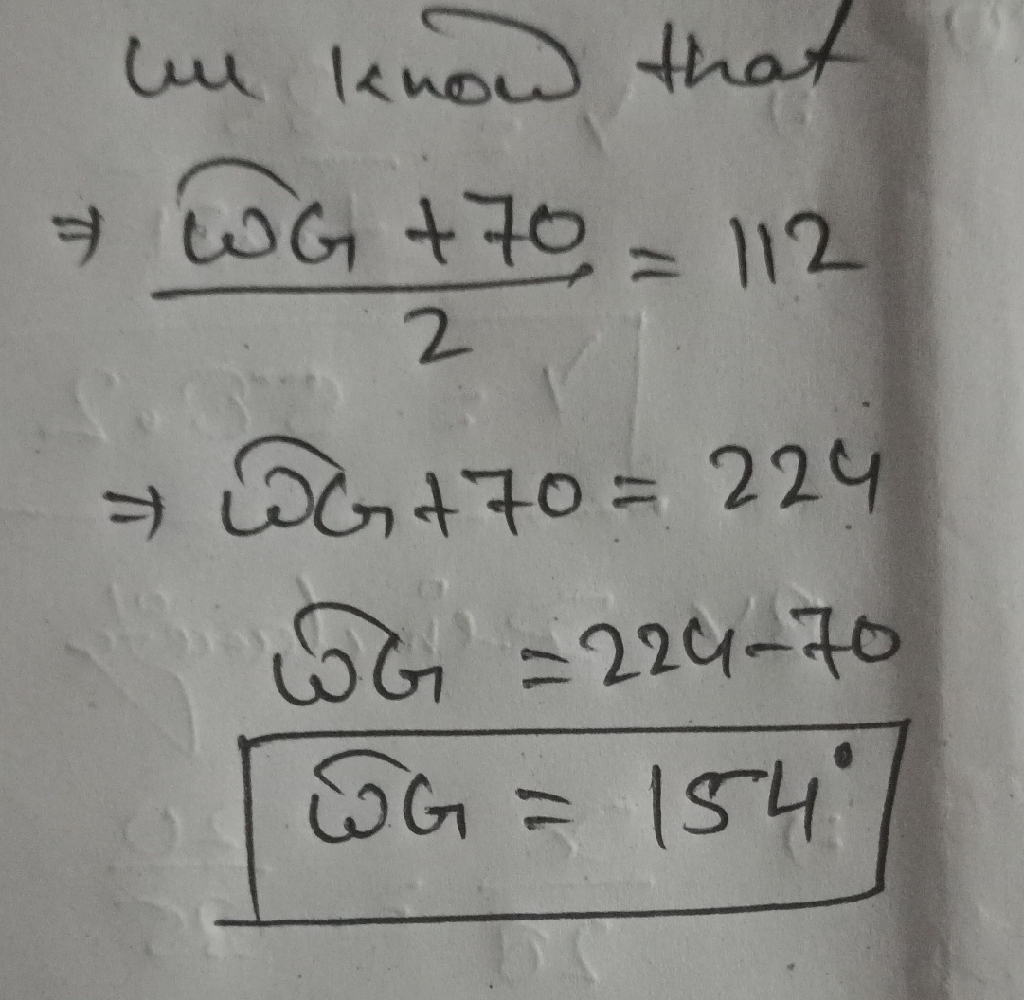 we know that
⇒ WG + 70 = 112
2
⇒ WG + 70 = 224
WG = 224 - 70
WG = 154°